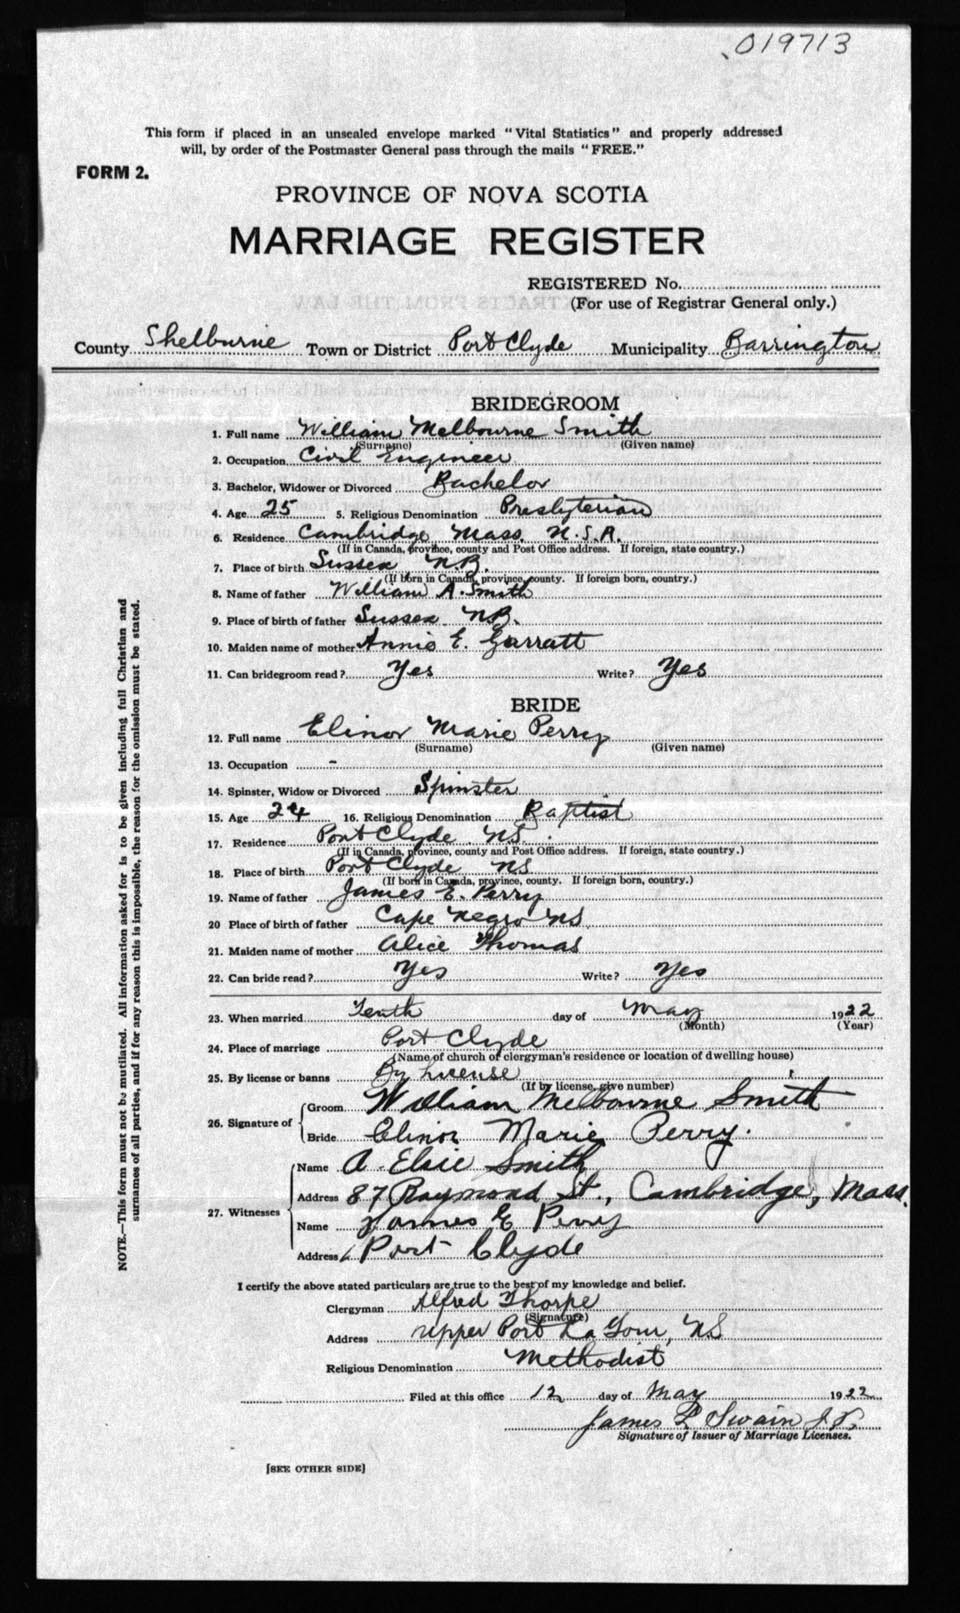 019713
This form if placed in an unsealed envelope marked "Vital Statistics" and properly addressed
will, by order of the Postmaster General pass through the mails "FREE."
FORM 2.
PROVINCE OF NOVA SCOTIA
MARRIAGE REGISTER
REGISTERED No.
(For use of Registrar General only.)
County Shelburne Town or District Port Clyde Municipality Barrington
BRIDEGROOM
1. Full name William Melbourne Smith
(Surname) (Given name)
2. Occupation Civil Engineer
3. Bachelor, Widower or Divorced Bachelor
4. Age 25 5. Religious Denomination Presbyterian
6. Residence Cambridge Mass. U.S.A.
(If in Canada, province, county and Post Office address. If foreign, state country.)
7. Place of birth Sussex N.B.
(If born in Canada, province, county. If foreign born, country.)
8. Name of father William A. Smith
9. Place of birth of father Sussex N.B.
10. Maiden name of mother Annie E. Garratt
11. Can bridegroom read? Yes Write? Yes
BRIDE
12. Full name Elinor Marie Perry
(Surname) (Given name)
13. Occupation -
14. Spinster, Widow or Divorced Spinster
15. Age 24 16. Religious Denomination Baptist
17. Residence Port Clyde N.S.
(If in Canada, province, county and Post Office address. If foreign, state country.)
18. Place of birth Port Clyde NS
(If born in Canada, province, county. If foreign born, country.)
19. Name of father James E. Perry
20 Place of birth of father Cape Negro NS
21. Maiden name of mother Alice Thomas
22. Can bride read? Yes Write? Yes
23. When married Tenth day of May 1922
(Month) (Year)
24. Place of marriage Port Clyde
(Name of church of clergyman's residence or location of dwelling house)
25. By license or banns By License
(If by license, give number)
26. Signature of Groom William Melbourne Smith
Bride Elinor Marie Perry.
27. Witnesses Name A. Elsie Smith
Address 87 Raymond St., Cambridge, Mass.
Name James E Perry
Address Port Clyde
I certify the above stated particulars are true to the best of my knowledge and belief.
Clergyman Alfred Thorpe
(Signature)
Address Upper Port La Tour, NS
Religious Denomination Methodist
Filed at this office 12 day of May 1922
James L Swain J.P.
Signature of Issuer of Marriage Licenses.
[SEE OTHER SIDE]
NOTE.—This form must not be mutilated. All information asked for is to be given including full Christian and
surnames of all parties, and if for any reason this is impossible, the reason for the omission must be stated.